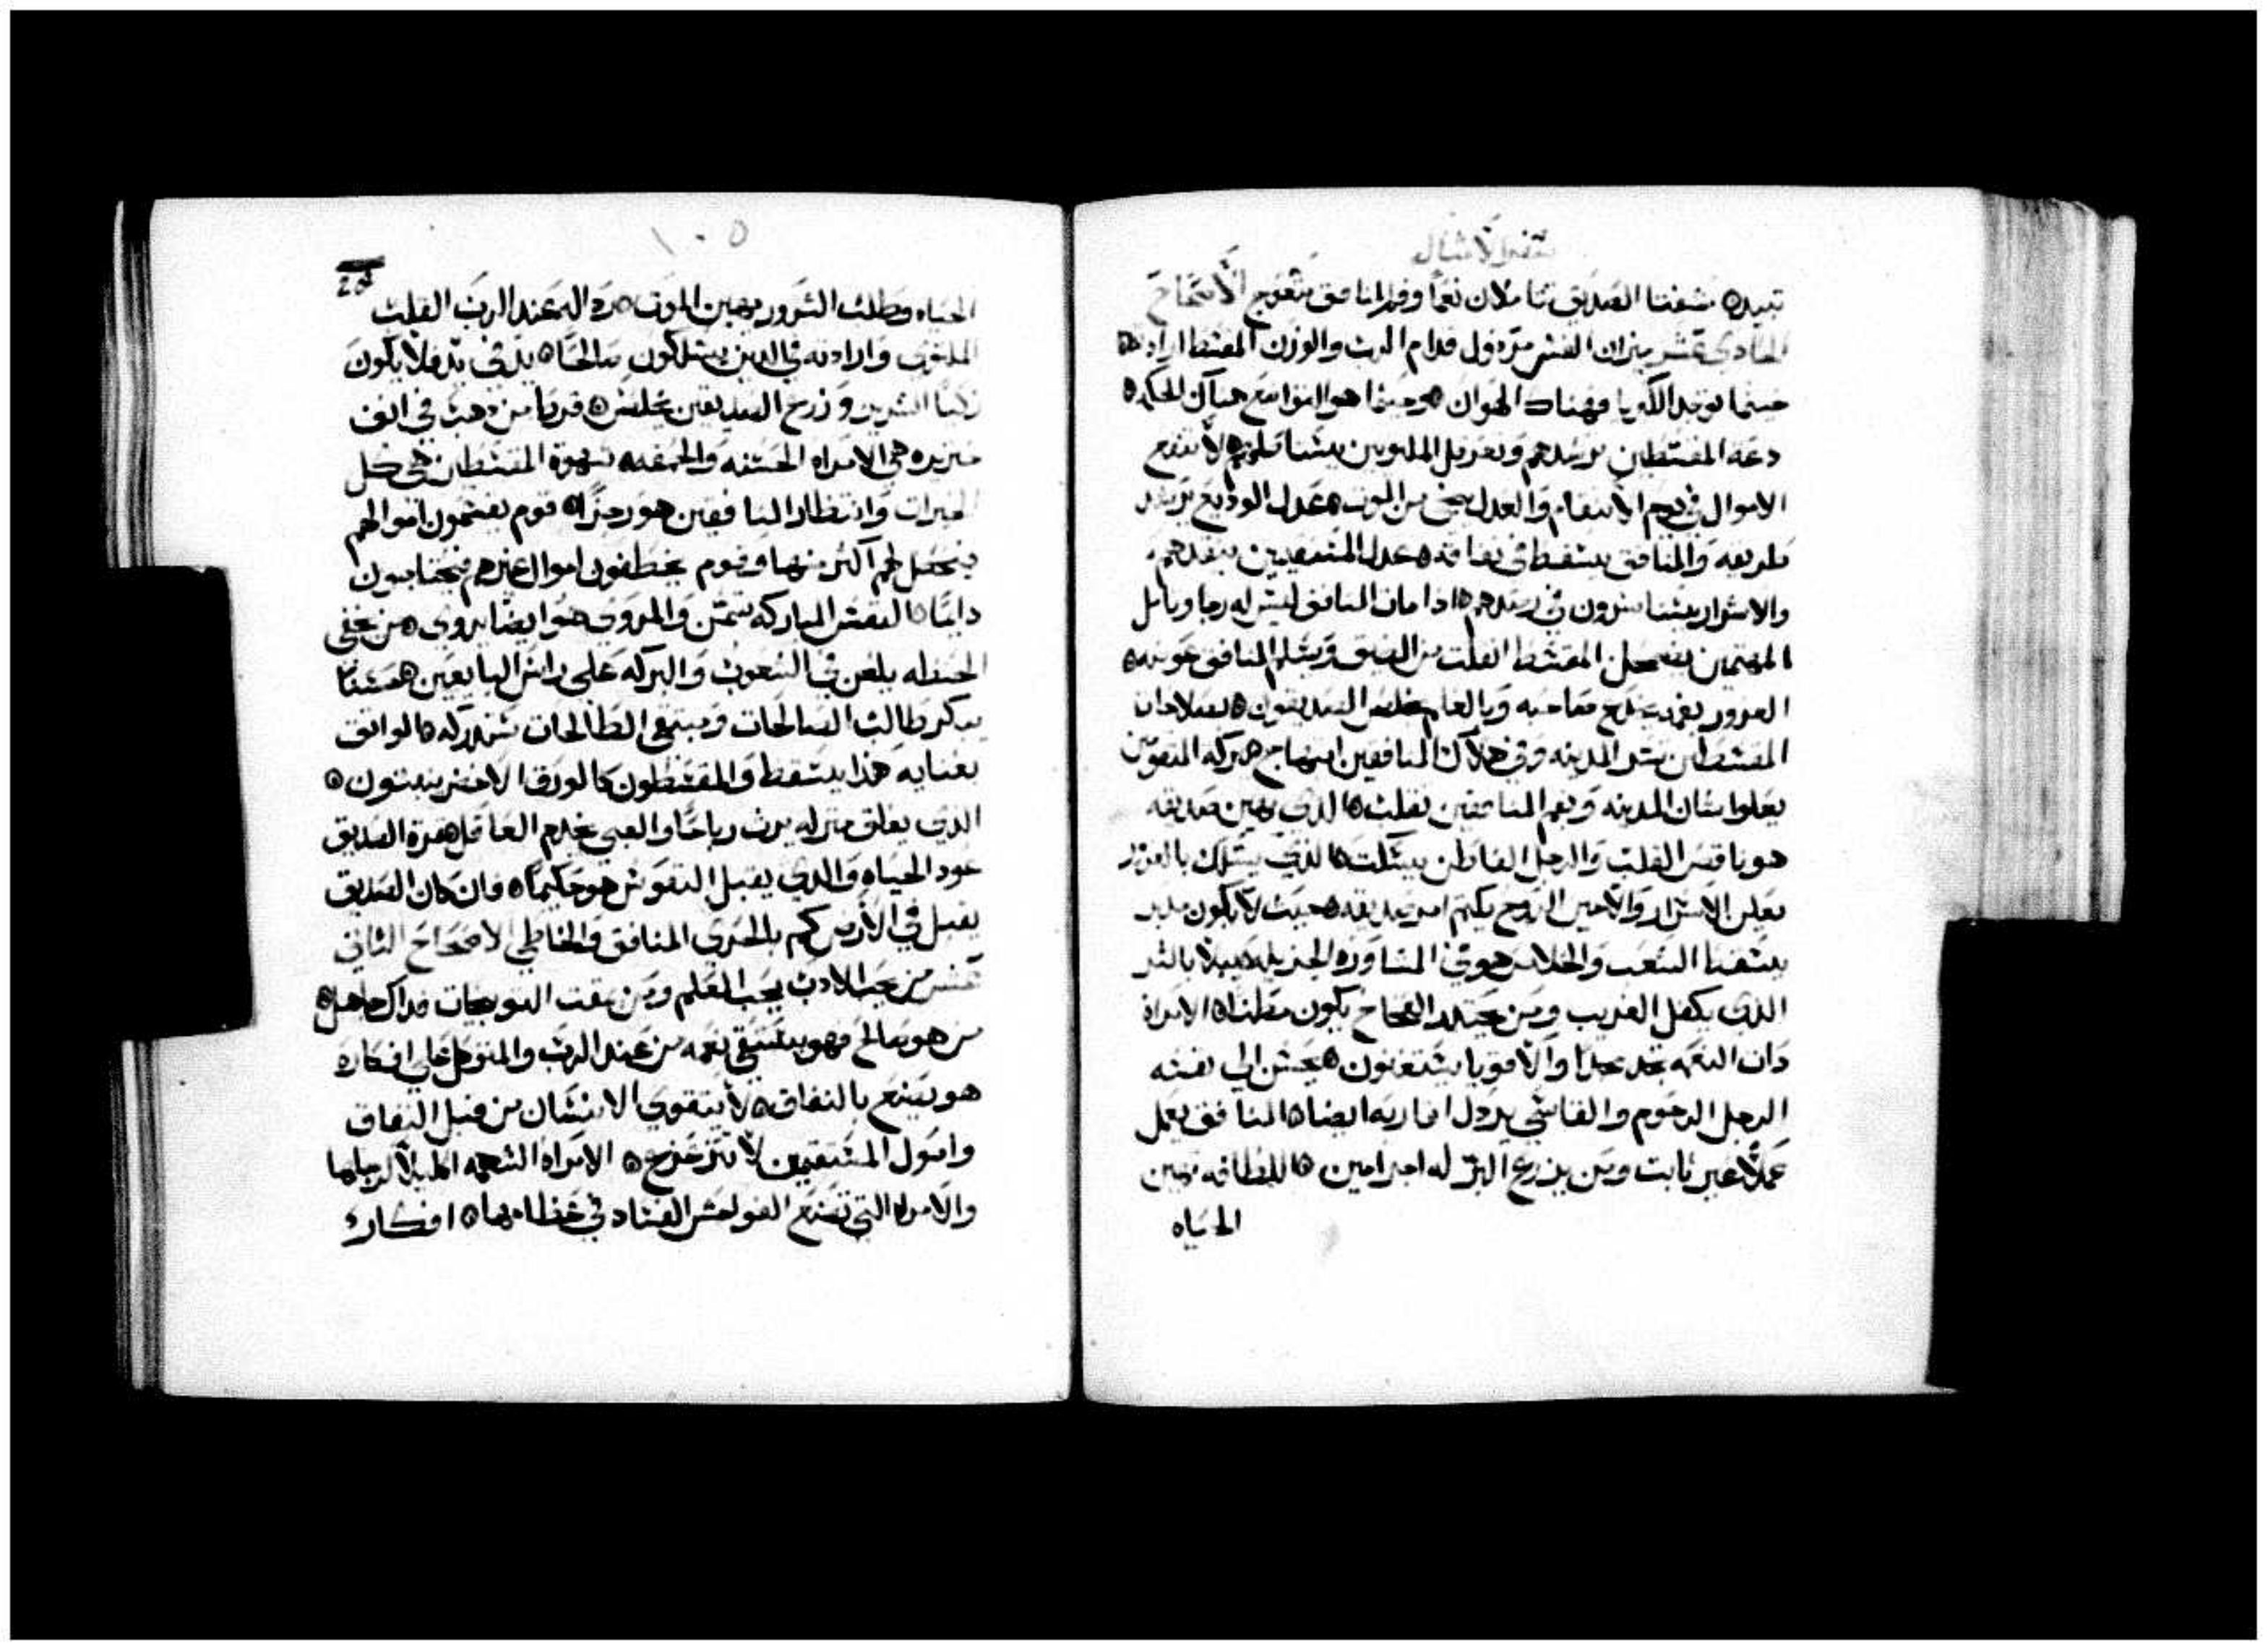 سفر الامثال
تبيده شفتا الصديق تتاملان نعماً وفم المنافق متعوج الاصحاح
الحادي عشر ميزان الغش مرذول قدام الرب والوزن المقسط ارادته
حيثما توجد الكبريا فهناك الهوان وحيثما هو التواضع هناك الحكمه
دعة المقسطين ترشدهم وتعرقل الملتويين يستاصلهم لا تنفع
الاموال في يوم الانتقام والعدل ينجي من الموت عدل الوديع يرشد
طريقه والمنافق يسقط في نفاقه عدل المستقيمين ينقذهم
والاشرار يستاسرون في رصدهم اذا مات المنافق ليس له رجا وباطل
المهتمين يضمحل المقسط انفلت من الضيق ويسلم المنافق عوضه
المزور بفمه يخدع صاحبه وبالعلم يخلص الصديقون بصلاحات
المقسطين تشد المدينه وفي هلاك المنافقين ابتهاج ببركه المقومين
يعلوا شان المدينه وبفم المنافقين تقلب الذي يهين صديقه
هو ناقص القلب والرجل الفاطن يسكت الذي يسلك بالغش
يعلن الاسرار والامين الروح يكتم امر صديقه حيث لا يكون مدبر
يسقط الشعب والخلاص هو في المشاوره الجزيله يبلا بالشر
الذي يكفل الغريب ومن يحيد الفخاخ يكون مطمنا الامراة
ذات النعمه تجد مجدا والاقويا يستغنون يحسن الي نفسه
الرجل الرحوم والقاسي يرذل اقاربه ايضا المنافق يعمل
عملاً غير ثابت ومن يزرع البر له اجر امين اللطافه تهين
الحياه
١٠٥
الحياه وطلب الشرور يهين الموت رداله عند الرب القلب
الملتوي وارادته في الدين يسلكون صالحا يد في يد فلا يكون
زكيا الشرير وزرع الصديقين يخلص قرطا من دهب في انف
خنزيره هي الامراه الحسنه والحمقه شهوة المقسطين هي كل
الخيرات وانتظار المنافقين هو رجزاً قوم يقسمون اموالهم
فيجعل لهم اكثر منها وقوم يخطفون اموال غيرهم فيحتاجون
دايما النفس المباركه تسمن والمروي هو ايضا يروي من يخفي
الحنطه يلعن في الشعوب والبركه علي راس البايعين حسنا
يبكر طالب الصالحات ومبتغي الطالحات ستدركه الواثق
بغنايه هذا يسقط والمقسطون كالورق الاخضر ينبتون
الذي يقلق منزله يرث رياحاً والغبي يخدم العاقل ثمرة الصديق
عود الحياه والذي يقبل النفوس هو حكيماً فان كان الصديق
يقبل في الارض كم بالحري المنافق والخاطي الاصحاح الثاني
عشر من يحب الادب يحب العلم ومن يمقت التوبيخات فداك جاهل
من هو صالح فهو يستقي نعمه من عند الرب والمتوكل علي افكاره
هو يصنع بالنفاق لا يتقوي الانسان من قبل النفاق
واصول المستقيمين لا تتزعزع الامراه الشهمه اكليلا لرجلها
والامراه التي تصنع الفواحش الفساد في عظامها افكار